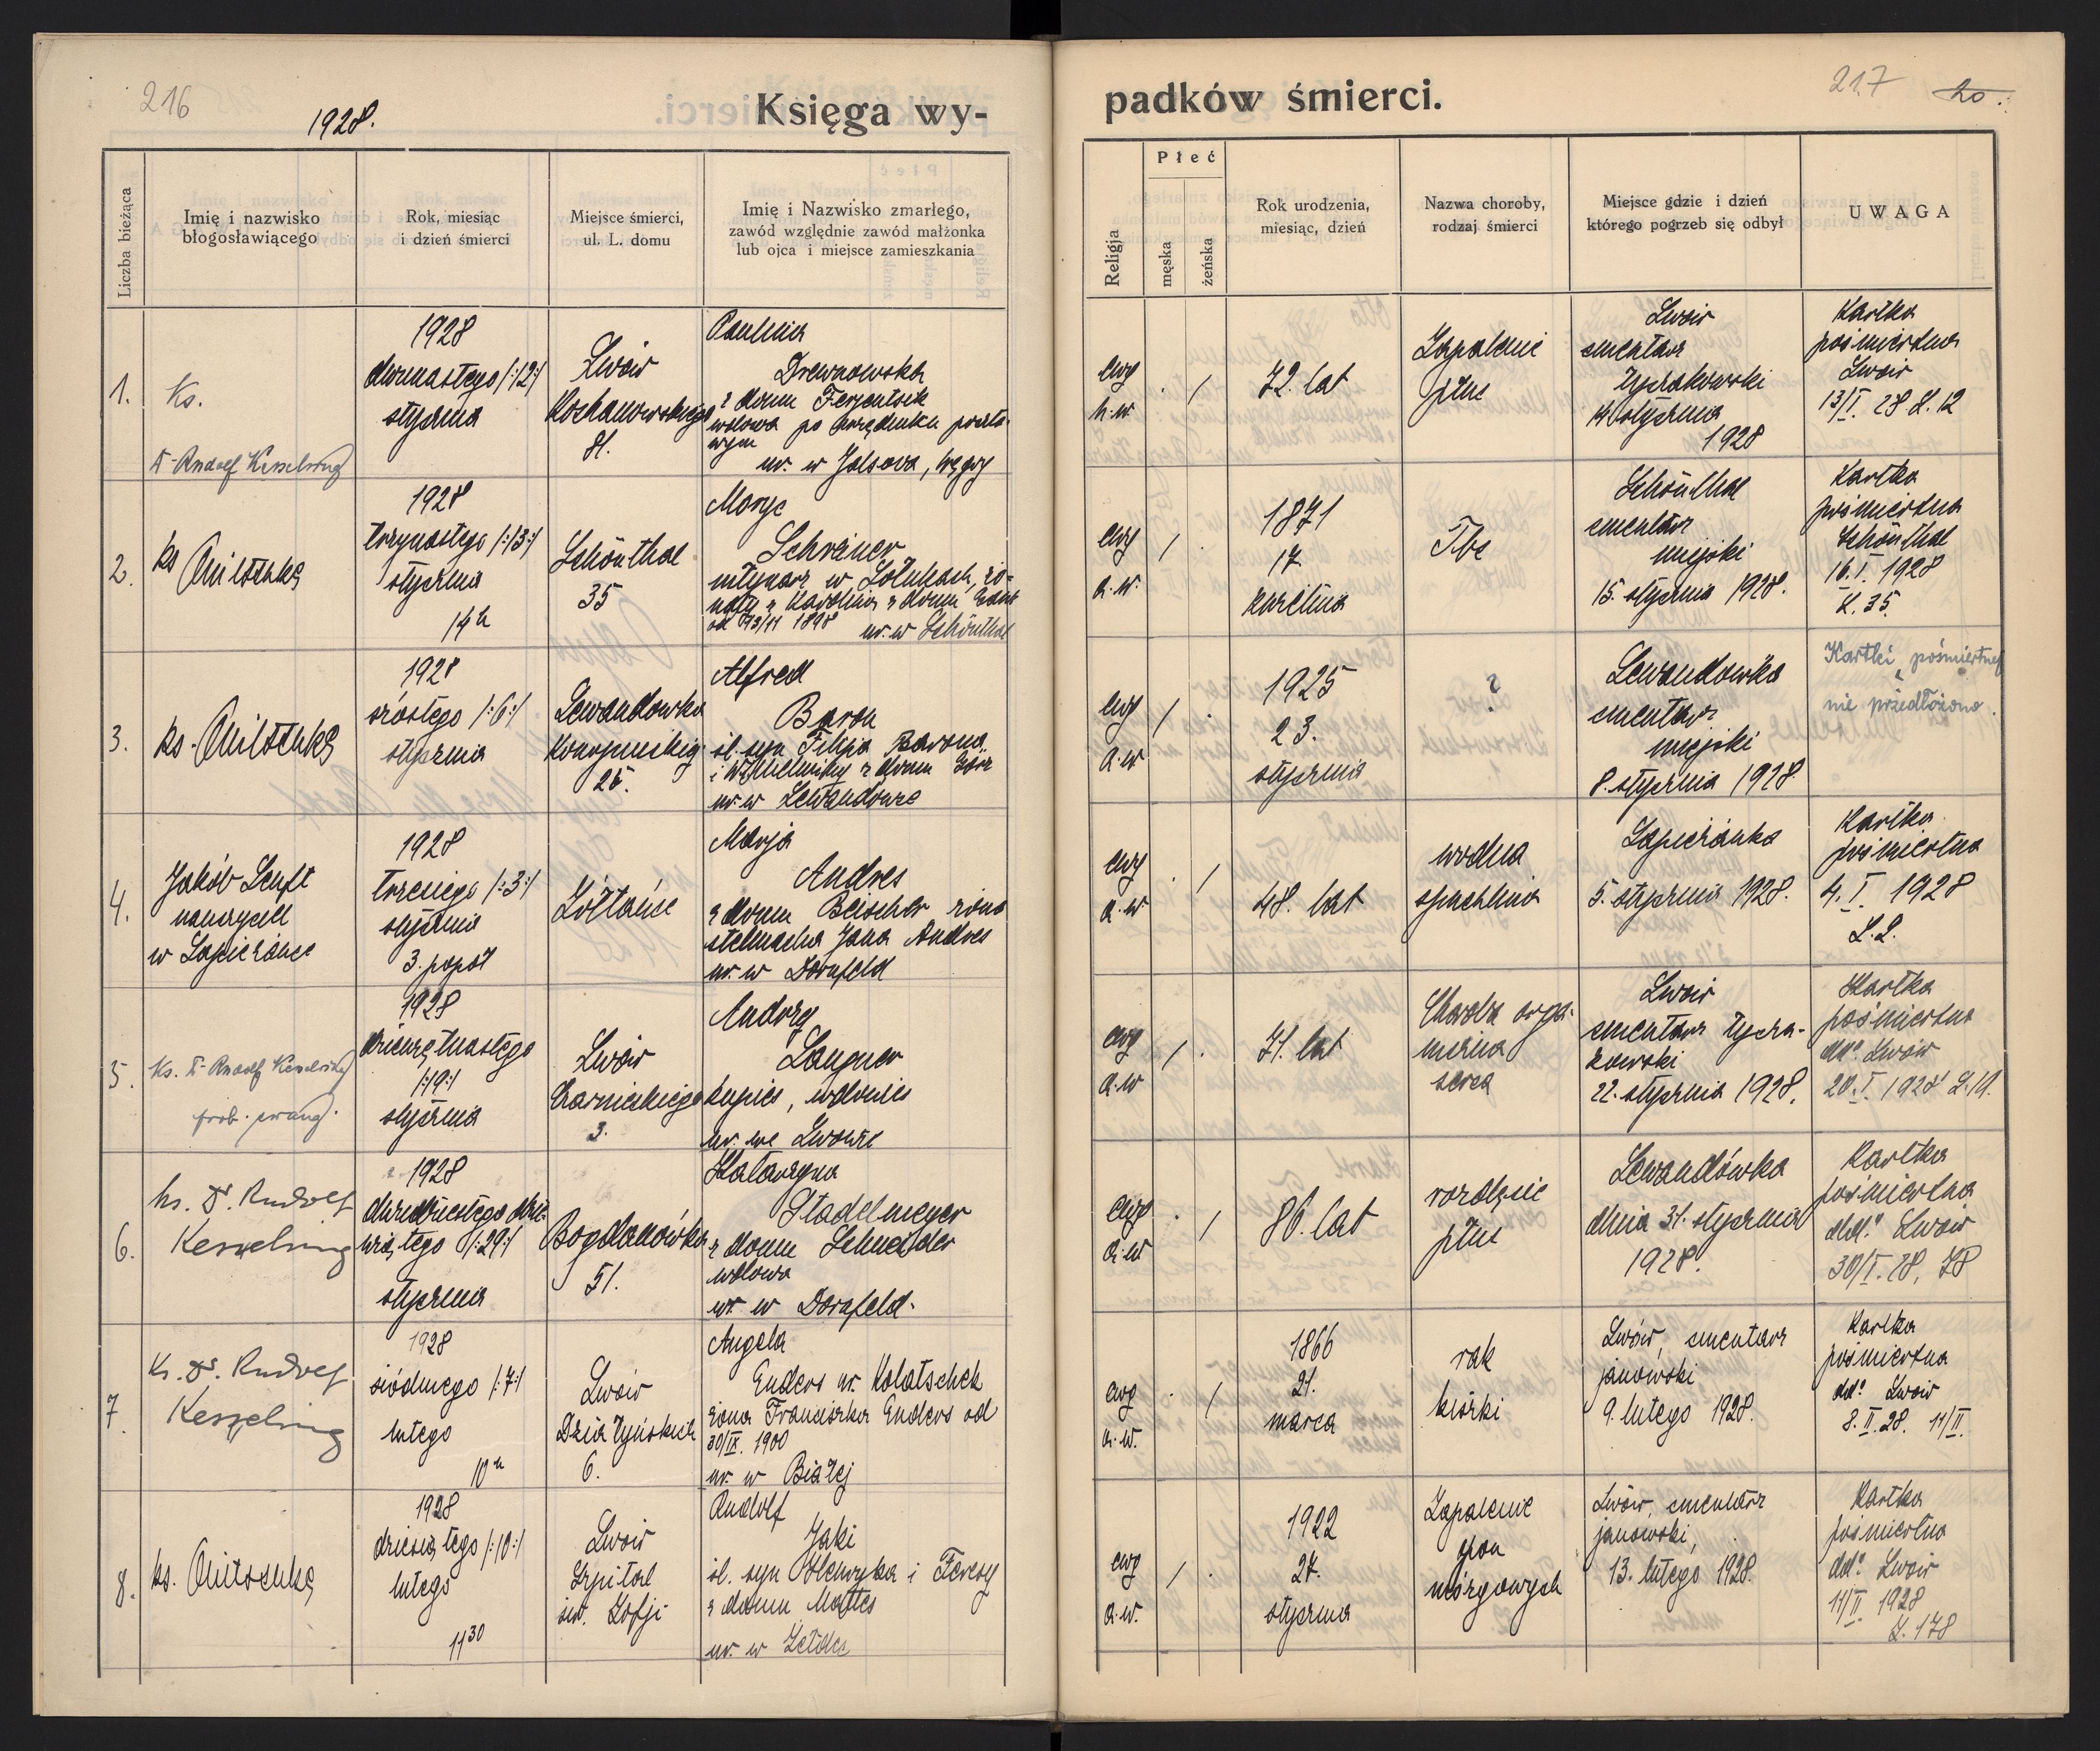 216
1928.
Księga wy-
Liczba bieżąca
Imię i nazwisko
błogosławiącego
Rok, miesiąc
i dzień śmierci
Miejsce śmierci,
ul. L. domu
Imię i Nazwisko zmarłego,
zawód względnie zawód małżonka
lub ojca i miejsce zamieszkania
1.
Ks.
Dr Rudolf Kesselring
1928
dwunastego /:12:/
stycznia
Lwów
Kochanowskiego
81.
Paulina
Drewnowska
z domu
wdowa po
wym
ur. w Jolsova, Węgry
2.
ks
1928
trzynastego /:13:/
stycznia
14h
Schönthal
35
Schreiner
młynarz w
z domu
ur. w Schönthal
3.
ks.
1928
szóstego /:6:/
stycznia
Lewandówka
25.
Alfred
Baron
śl. syn Filipa Barona
i Wilhelminy z domu
ur. w Lewandówce
4.
Jakób Senft
nauczyciel
w Sapieżance
1928
trzeciego /:3:/
stycznia
3. popoł
Żółtańce
Marja
Andres
z domu Beischer żona
stelmacha Jana Andres
ur. w Dornfeld
5.
Ks. Dr Rudolf Kesselring
prob. ewang.
1928
dziewiętnastego
/:19:/
stycznia
Lwów
Czarnieckiego
3.
Andrzej
Langner
kupiec, wdowiec
ur. we Lwowie
6.
ks. Dr. Rudolf
Kesselring
1928
dwudziestego dzie-
wiątego /:29:/
stycznia
Bogdanówka
51.
Katarzyna
Stadelmeyer
z domu Schneider
wdowa
ur. w Dornfeld.
7.
Ks. Dr. Rudolf
Kesselring
1928
siódmego /:7:/
lutego
10h
Lwów
Działyńskich
6.
Angela
Enders ur. Kolatschek
żona Franciszka Enders od
30/IX. 1900
ur. w Białej
8.
ks.
1928
dziesiątego /:10:/
lutego
11 30
Lwów
Szpital
św. Zofji
Rudolf
Jaki
śl. syn Henryka i Teresy
z domu Mattes
ur. w
padków śmierci.
217
Religja
Płeć
męska
żeńska
Rok urodzenia,
miesiąc, dzień
Nazwa choroby,
rodzaj śmierci
Miejsce gdzie i dzień
którego pogrzeb się odbył
UWAGA
ewg
h.w.
72. lat
Zapalenie
płuc
Lwów
cmentarz
Łyczakowski
14 stycznia
1928
Kartka
pośmiertna
Lwów
13/I. 28 L. 12
ewg
a.w.
1871
17.
kwietnia
Tbc
Schönthal
cmentarz
miejski
15. stycznia 1928.
Kartka
pośmiertna
Schönthal
16.I. 1928
L. 35.
ewg
a.w
1925
23.
stycznia
?
Lewandówka
cmentarz
miejski
8. stycznia 1928.
Kartki pośmiertnej
nie przedłożono.
ewg
a.w
48. lat
wodna
spuchlina
Sapieżanka
5. stycznia 1928.
Kartka
pośmiertna
4. I. 1928
ewg
a.w
71. lat
Choroba orga-
niczna
serca
Lwów
cmentarz Łycza-
kowski
22. stycznia 1928.
Kartka
pośmiertna
ddo Lwów
20.I 1928 L.19.
ewg
a.w
86. lat
rozdęcie
płuc
Lewandówka
dnia 31. stycznia
1928.
Kartka
pośmiertna
ddo Lwów
30/I. 28, 78
ewg
a.w.
1866
21.
marca
rak
kiszki
Lwów, cmentarz
janowski
9. lutego 1928.
Kartka
pośmiertna
ddo Lwów
8.II.28. 11/II.
ewg
a.w.
1922
27.
stycznia
Zapalenie
opon
mózgowych
Lwów, cmentarz
janowski,
13. lutego 1928.
Kartka
pośmiertna
ddo Lwów
11/II 1928
L. 178